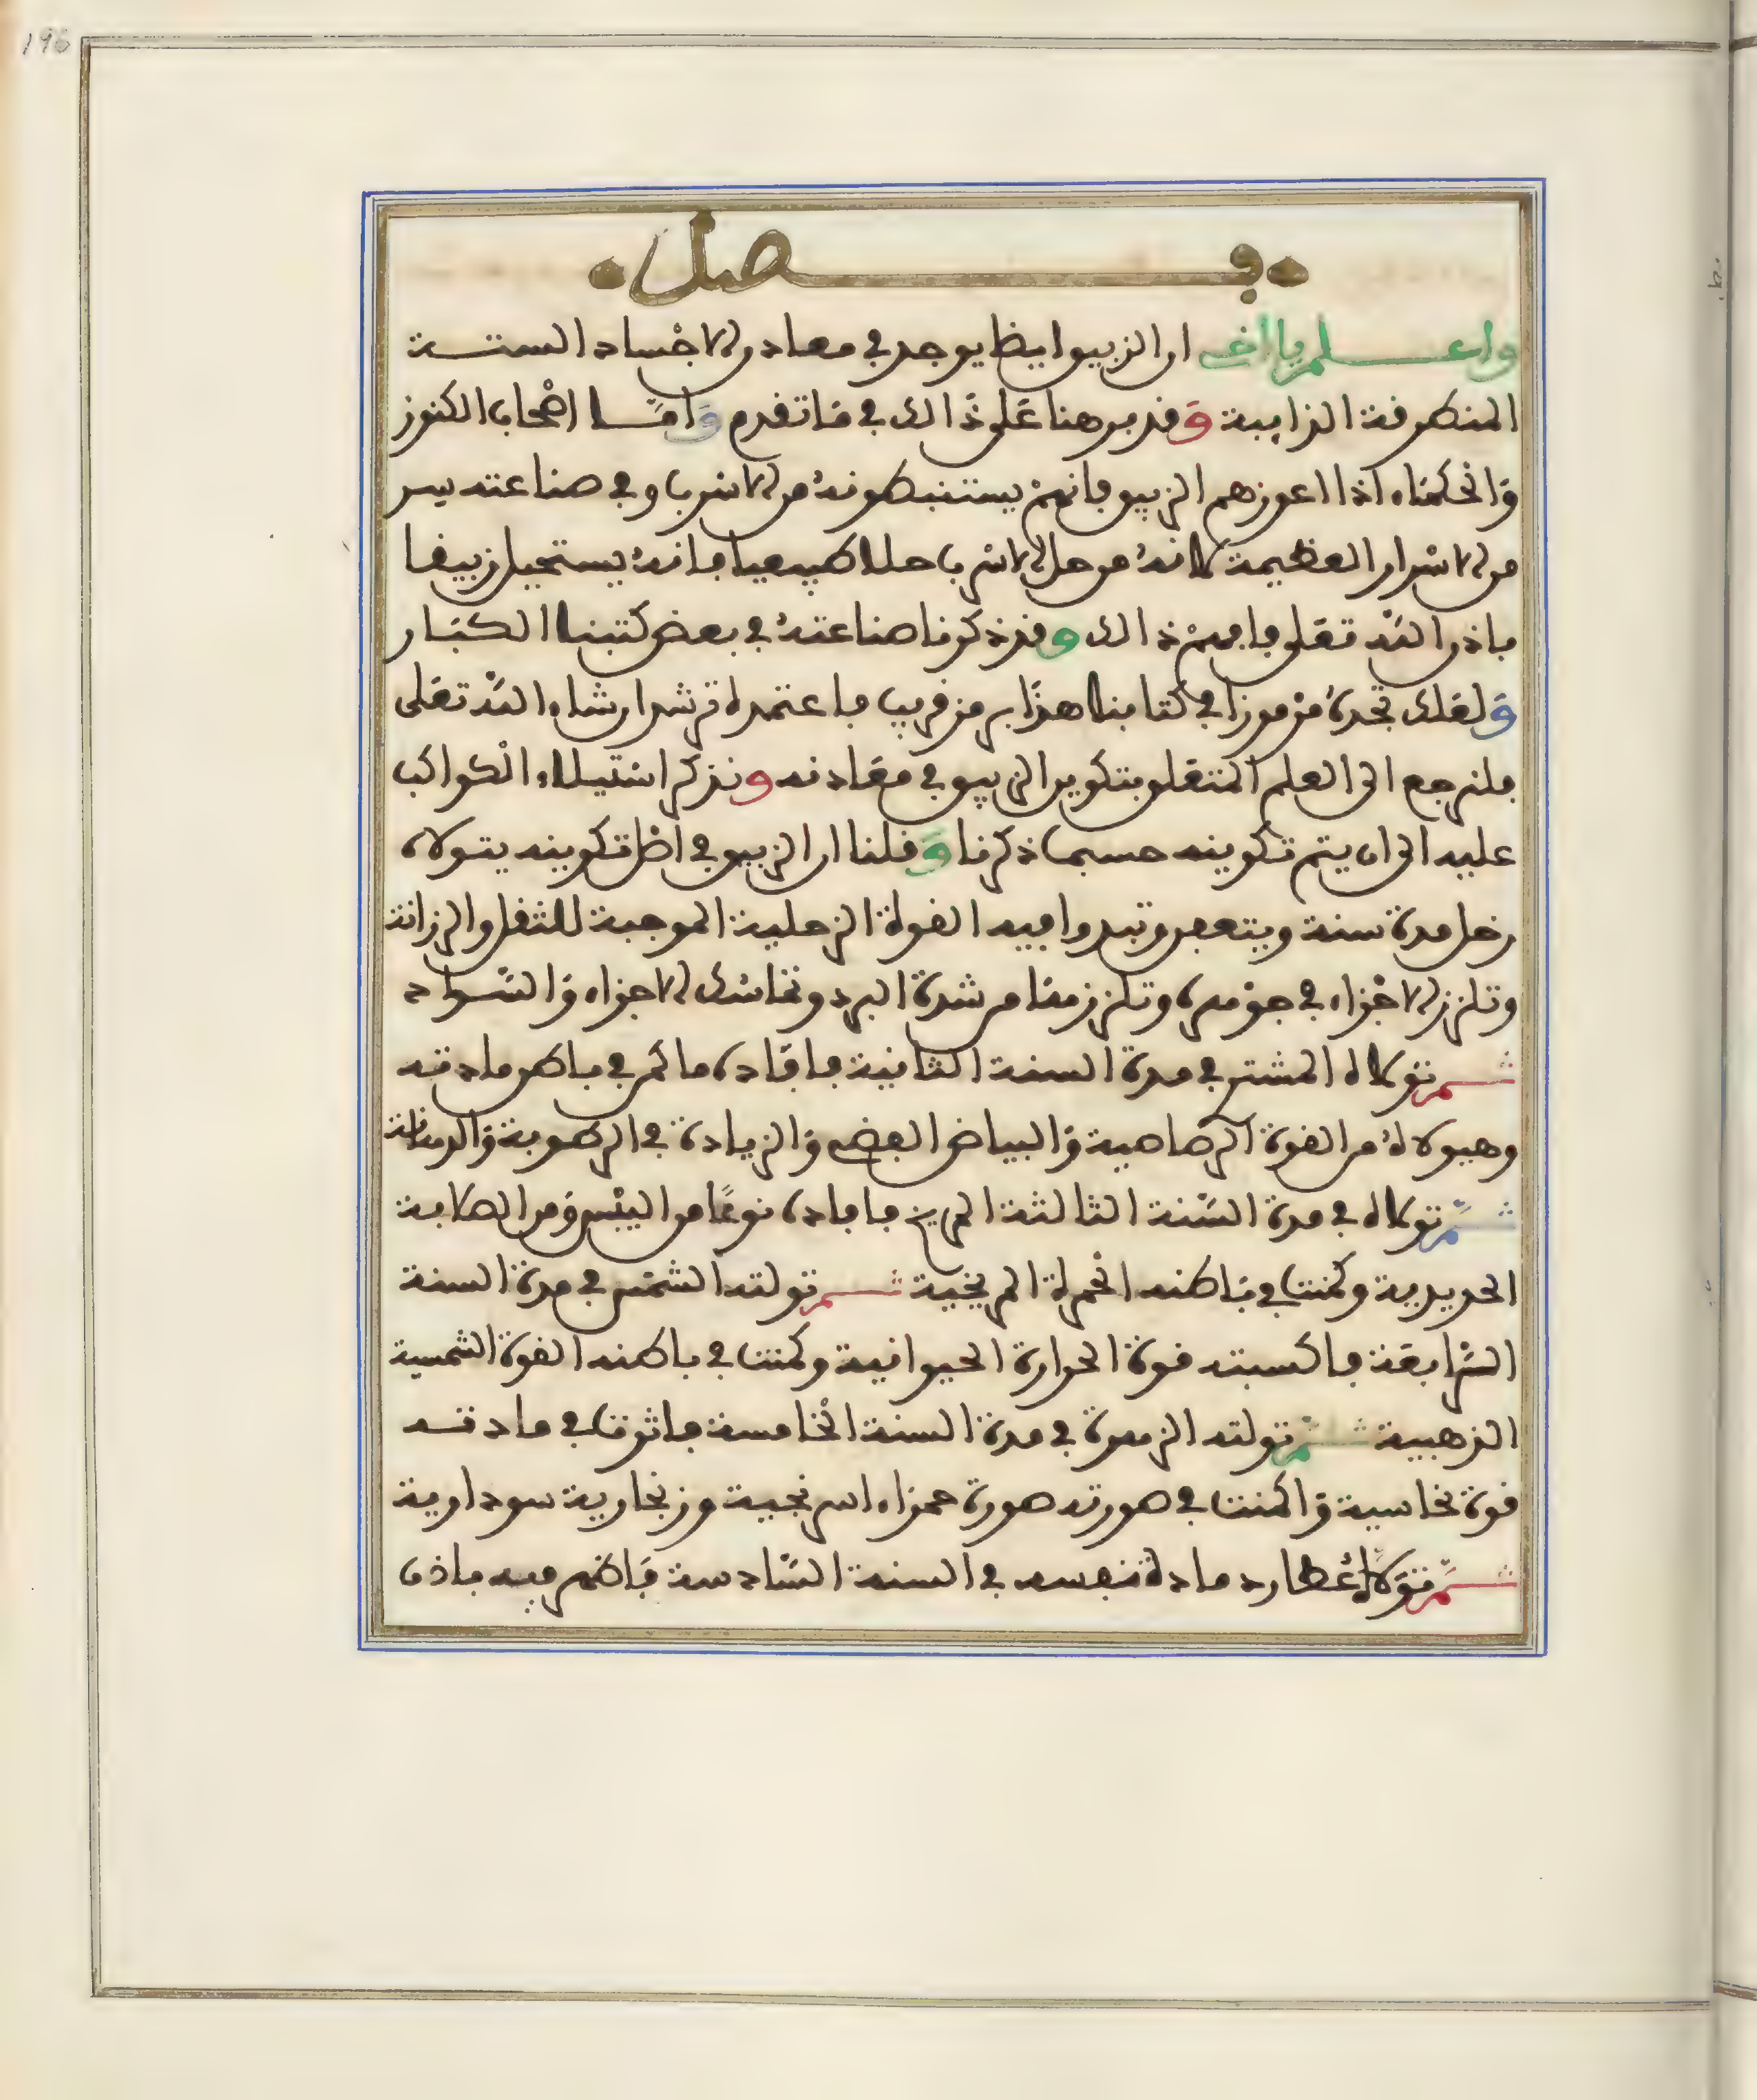 196
فصل
واعلم يا اخي ان الزيبق ايضا يوجد في معادن الاجساد الستة
المنطرقة الذايبة وقد برهنا على ذالك في ما تقدم واما اصحاب الكنوز
والحكماء اذا اعوزهم الزيبق فانهم يستنبطونه من الاسرب وفي صناعته سر
من الاسرار العظيمة لانه من حل الاسرب حلا طبيعيا فانه يستحيل زيبقا
باذن الله تعلى فافهم ذالك وقد ذكرنا صناعته في بعض كتبنا الكبار
ولعلك تجده مرموزا في كتابنا هذا برمز قريب فاعتمده ترشد ان شاء الله تعلى
فلنرجع الى العلم المتعلق بتكوين الزيبق في معادنه ونذكر استيلاء الكواكب
عليه الى ان يتم تكوينه حسبما ذكرنا وقلنا ان الزيبق في اصل تكوينه يتولاه
زحل مدة سنة ويتعفن وتبدوا فيه القوة الزحلية الموجبة للثقل والرزانة
وتلزز الاجزاء في جوهره وتلززهما من شدة البرد وتماسك الاجزاء والسواد
ثم تولاه المشتري في مدة السنة الثانية فافاده ما كمن في باطن مادته
وهيولاه من القوة الرصاصية والبياض الفضي والزيادة في الرطوبة والدهانة
ثم تولاه في مدة السنة الثالثة المريخ فافاده نوعا من اليبس ومن الصلابة
الحديدية وكمنت في باطنه الحمرة المريخية ثم تولته الشمس في مدة السنة
الرابعة فاكسبته قوة الحرارة الحيوانية وكمنت في باطنه القوة الشمسية
الذهبية ثم تولته الزهرة في مدة السنة الخامسة فاثرت في مادته
قوة نحاسية واكمنت في صورته صورة حمراء اسرنجية وزنجارية سوداوية
ثم تولاه عطارد مادة نفسه في السنة السادسة فاظهر فيه ماذى